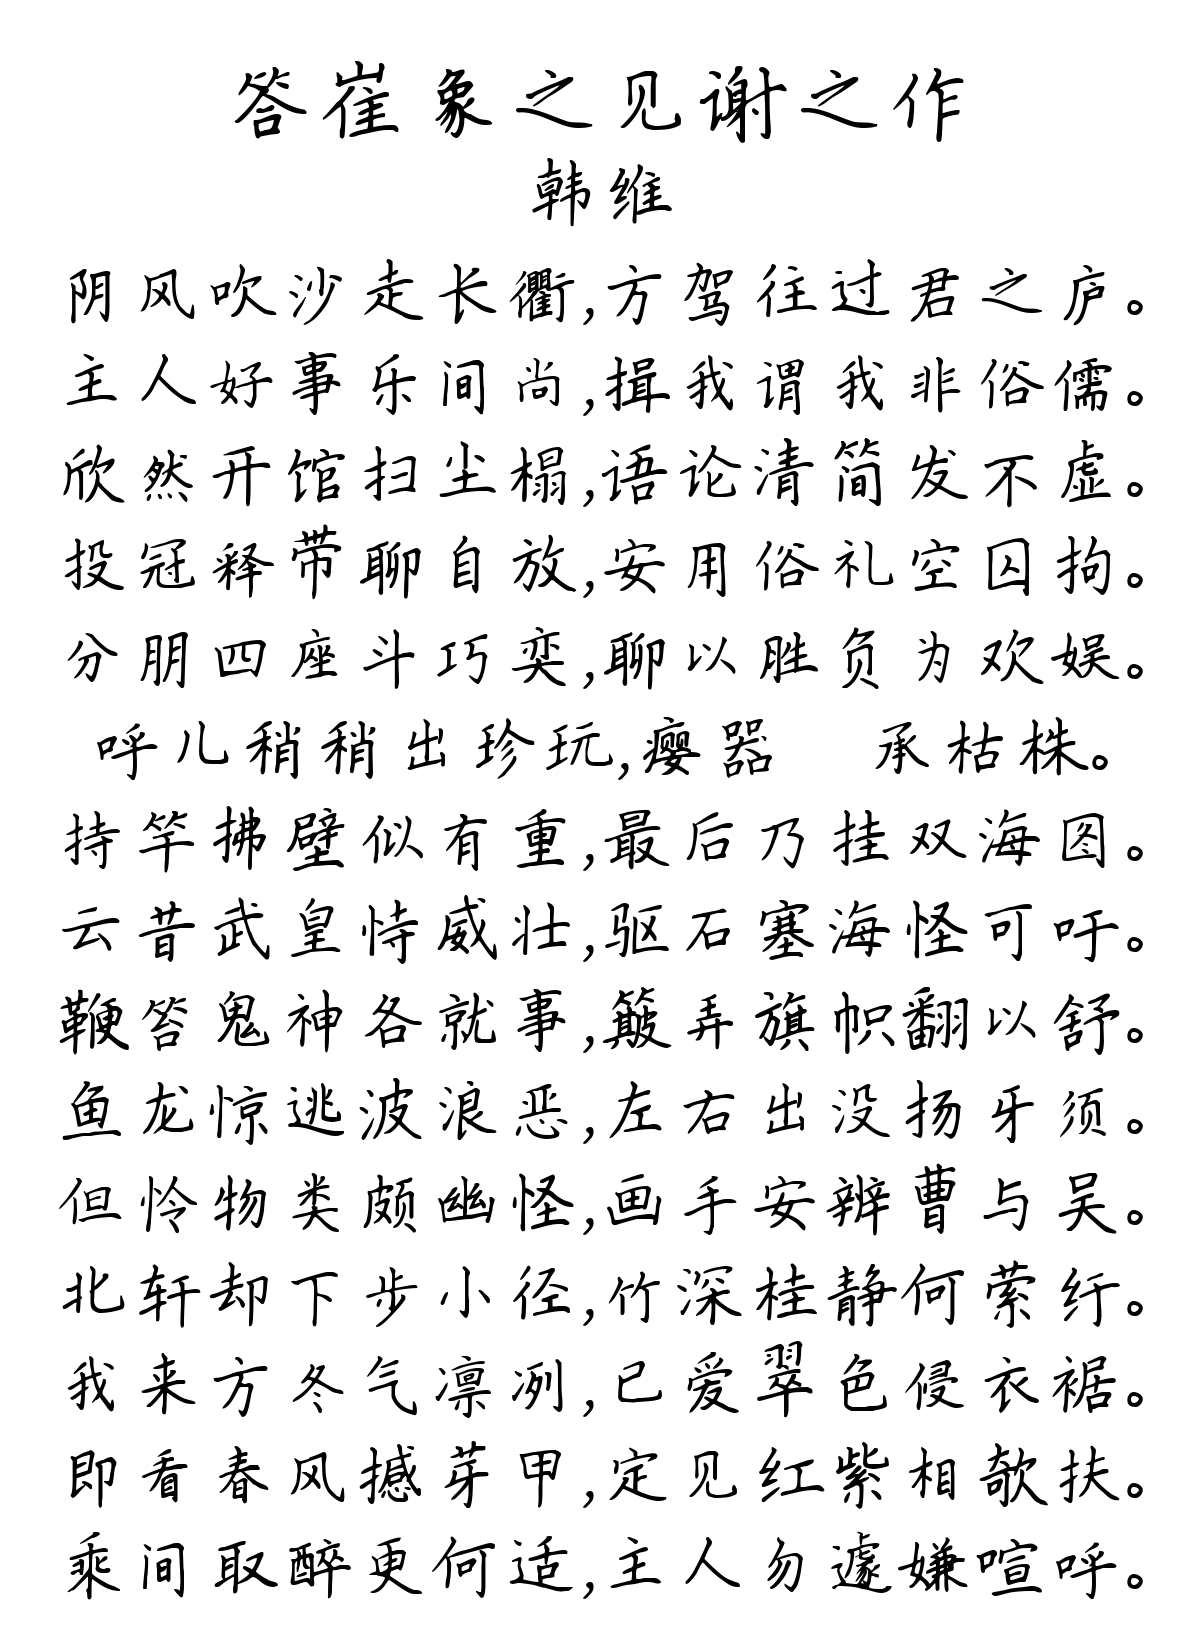 答崔象之见谢之作
韩维
阴风吹沙走长衢,方驾往过君之庐。
主人好事乐间尚,揖我谓我非俗儒。
欣然开馆扫尘榻,语论清简发不虚。
投冠释带聊自放,安用俗礼空囚拘。
分朋四座斗巧奕,聊以胜负为欢娱。
呼儿稍稍出珍玩,瘿器 承枯株。
持竿拂壁似有重,最后乃挂双海图。
云昔武皇恃威壮,驱石塞海怪可吁。
鞭笞鬼神各就事,簸弄旗帜翻以舒。
鱼龙惊逃波浪恶,左右出没扬牙须。
但怜物类颇幽怪,画手安辨曹与吴。
北轩却下步小径,竹深桂静何萦纡。
我来方冬气凛冽,已爱翠色侵衣裾。
即看春风撼芽甲,定见红紫相欹扶。
乘间取醉更何适,主人勿遽嫌喧呼。